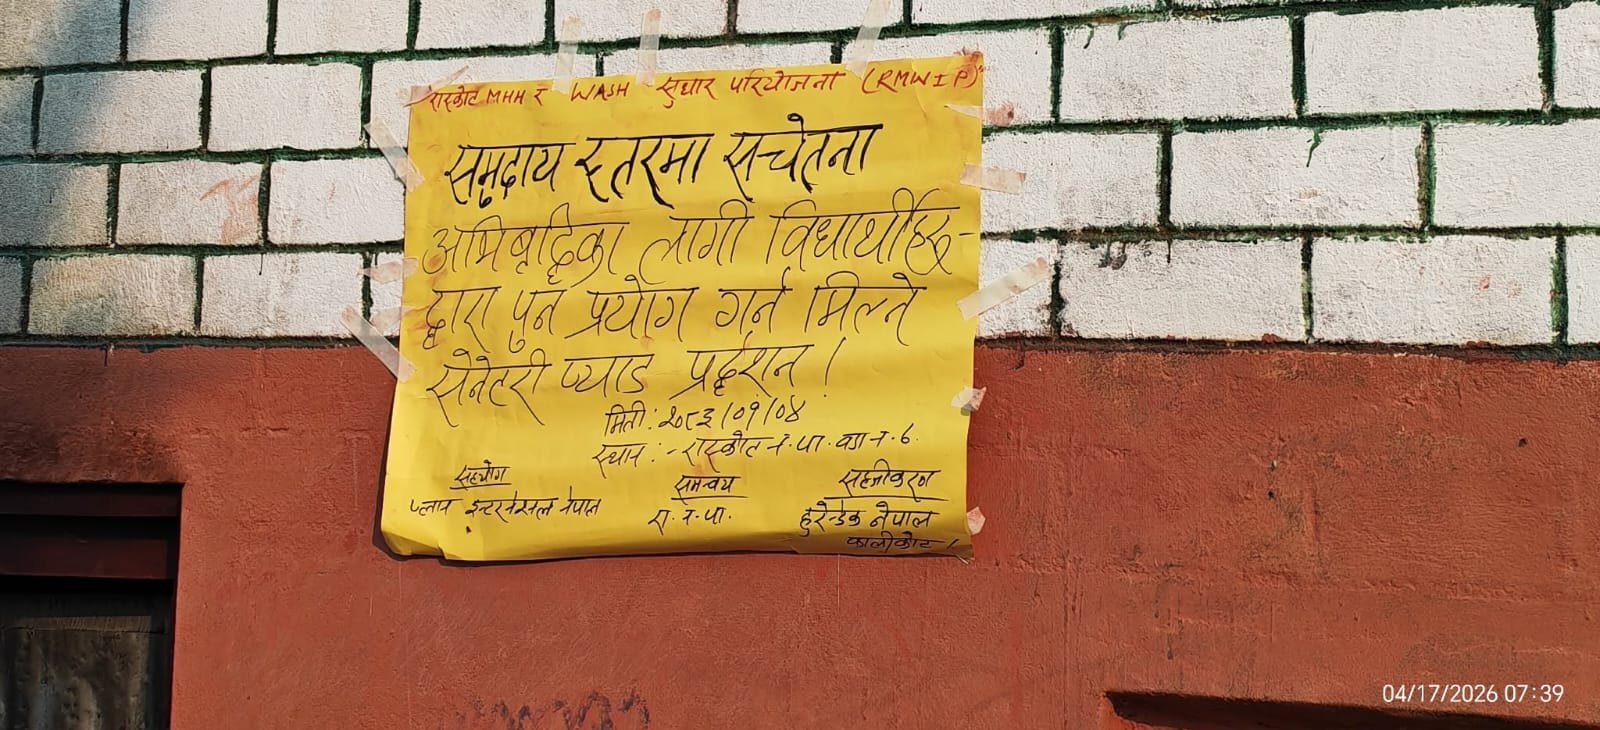 रास्कोट MHH र WASH सुधार परियोजना (RMWIP)"
समुदाय स्तरमा सचेतना
अभिबृद्दिका लागी विधार्थीहरु-
द्वारा पुन प्रयोग गर्न मिल्ने
सेनेटरी प्याड प्रर्दशन ।
मिती: २०८३/०१/०४
स्थान :- रास्कोट न.पा. वडा न. ७.
सहयोग
प्लान इन्टरनेसनल नेपाल
समन्वय
रा. न. पा.
सहजीकरण
हुरेन्डेक नेपाल
कालीकोट ।
04/17/2026 07:39